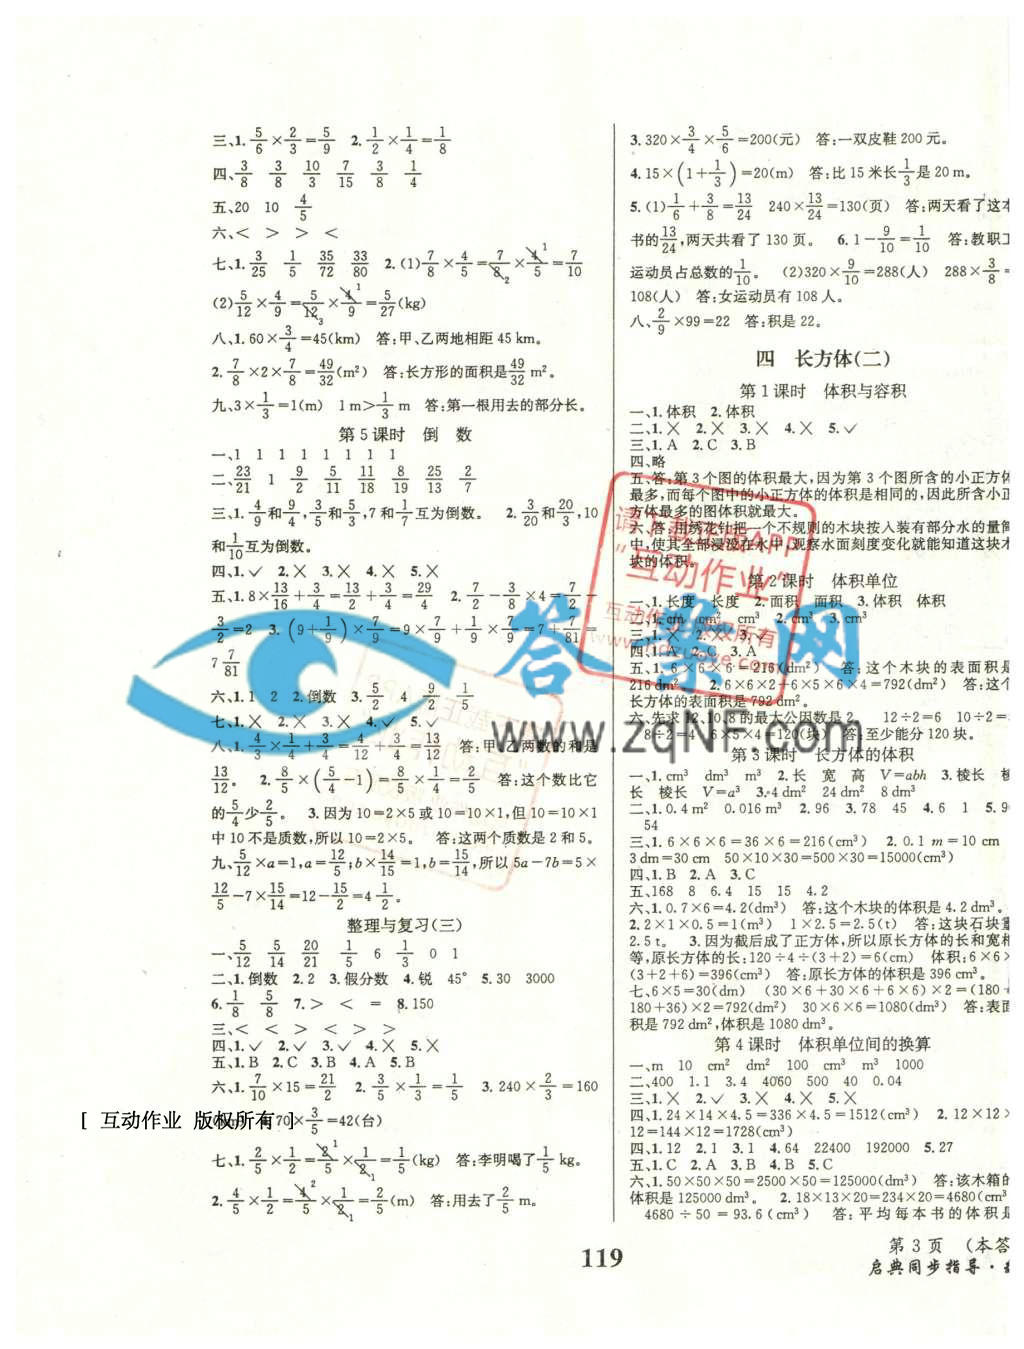 三、1. 5/6×2/3=5/9 2. 1/2×1/4=1/8
四、3/8 3/8 10/3 7/15 3/8 1/4
五、20 10 4/5
六、< > > <
七、1. 3/25 1/5 35/72 33/80 2.(1)7/8×4/5=7/8×4/5=7/10
(2)5/12×4/9=5/12×4/9=5/27(kg)
八、1. 60×3/4=45(km) 答:甲、乙两地相距 45 km。
2. 7/8×2×7/8=49/32(m²) 答:长方形的面积是49/32 m²。
九、3×1/3=1(m) 1 m>1/3 m 答:第一根用去的部分长。
第 5 课时 倒 数
一、1 1 1 1 1 1 1 1
二、23/21 1 9/2 5/11 8/25 13/2
三、1. 4/9和9/4,3/5和5/3,7和1/7互为倒数。 2. 3/20和20/3,10
和1/10互为倒数。
四、1.✓ 2.× 3.× 4.× 5.×
五、1. 8×13/16+3/4=13/2+3/4=29/4 2. 7/2-3/8×4=7/2-
3/2=2 3.(9+1/9)×7/9=9×7/9+1/9×7/9=7+7/81=
7 7/81
六、1. 1 2 2.倒数 3. 5/2 4 9/2 1/5
七、1.× 2.× 3.× 4.✓ 5.✓
八、1. 4/3×1/4+3/4=4/12+3/4=13/12 答:甲、乙两数的和是
13/12。 2. 8/5×(5/4-1)=8/5×1/4=2/5 答:这个数比它
的5/4少2/5。 3.因为10=2×5或10=10×1,但10=10×1
中10不是质数,所以10=2×5。 答:这两个质数是2和5。
九、5/12×a=1,a=12/5;b×14/15=1,b=15/14,所以5a-7b=5×
12/5-7×15/14=12-15/2=4 1/2。
整理与复习(三)
一、5/12 5/14 20/21 1/5 6 1/3 0 1
二、1.倒数 2. 2 3.假分数 4.锐 45° 5. 30 3000
6. 1/8 5/8 7. > < = 8. 150
三、< < > < > >
四、1.✓ 2.✓ 3.✓ 4.× 5.×
五、1. B 2. C 3. B 4. A 5. B
六、1. 7/10×15=21/2 2. 3/5×1/3=1/5 3. 240×2/3=160
70×3/5=42(台)
[ 互动作业 版权所有 ]
七、1. 2/5×1/2=2/5×1/2=1/5(kg) 答:李明喝了1/5 kg。
2. 4/5×1/2=4/5×1/2=2/5(m) 答:用去了2/5 m。
3. 320×3/4×5/6=200(元) 答:一双皮鞋 200 元。
4. 15×(1+1/3)=20(m) 答:比 15 米长1/3是 20 m。
5.(1)1/6+3/8=13/24 240×13/24=130(页) 答:两天看了这本
书的13/24,两天共看了 130 页。 6. 1-9/10=1/10 答:教职工
运动员占总数的1/10。 (2)320×9/10=288(人) 288×3/8=
108(人) 答:女运动员有 108 人。
八、2/9×99=22 答:积是 22。
四 长方体(二)
第 1 课时 体积与容积
一、1.体积 2.体积
二、1.× 2.× 3.× 4.× 5.✓
三、1. A 2. C 3. B
四、略
五、答:第 3 个图的体积最大,因为第 3 个图所含的小正方体
最多,而每个图中的小正方体的体积是相同的,因此所含小正
方体最多的图体积就最大。
六、答:用绣花针把一个不规则的木块按入装有部分水的量筒
中,使其全部浸没在水中,观察水面刻度变化就能知道这块木
块的体积。
请下载正版APP
"互动作业"
互动作业 版权所有
第 2 课时 体积单位
一、1.长度 长度 2.面积 面积 3.体积 体积
二、1. cm cm² cm³ 2. cm³ 3. cm³
三、1.× 2.× 3.✓
四、1. A 2. C 3. A
五、1. 6×6×6=216(dm²) 答:这个木块的表面积是
216 dm²。 2. 6×6×2+6×5×6×4=792(dm²) 答:这个
长方体的表面积是 792 dm²。
六、先求 12、10、8 的最大公因数是 2。 12÷2=6 10÷2=
5 8÷2=4 6×5×4=120(块) 答:至少能分 120 块。
答案网
www.zqNF.com
第 3 课时 长方体的体积
一、1. cm³ dm³ m³ 2.长 宽 高 V=abh 3.棱长 棱
长 棱长 V=a³ 3. 4 dm² 24 dm² 8 dm³
二、1. 0.4 m² 0.016 m³ 2. 96 3. 78 45 4. 6 1
54
三、1. 6×6×6=36×6=216(cm³) 2. 0.1 m=10 cm
3 dm=30 cm 50×10×30=500×30=15000(cm³)
四、1. B 2. A 3. C
五、168 8 6.4 15 15 4.2
六、1. 0.7×6=4.2(dm³) 答:这个木块的体积是 4.2 dm³。
2. 2×1×0.5=1(m³) 1×2.5=2.5(t) 答:这块石块重
2.5 t。 3.因为截后成了正方体,所以原长方体的长和宽相
等,原长方体的长:120÷4÷(3+2)=6(cm) 体积:6×6×
(3+2+6)=396(cm³) 答:原长方体的体积是 396 cm³。
七、6×5=30(dm) (30×6+30×6+6×6)×2=(180+
180+36)×2=792(dm²) 30×6×6=1080(dm³) 答:表面
积是 792 dm²,体积是 1080 dm³。
第 4 课时 体积单位间的换算
一、m 10 cm² dm² 100 cm³ m³ 1000
二、400 1.1 3.4 4060 500 40 0.04
三、1.× 2.✓ 3.× 4.× 5.×
四、1. 24×14×4.5=336×4.5=1512(cm³) 2. 12×12×
12=144×12=1728(cm³)
四、1. 12 2. 1 3. 1 4. 64 22400 192000 5. 27
五、1. C 2. A 3. A 4. B 5. C
六、1. 50×50×50=2500×50=125000(dm³) 答:该木箱的
体积是 125000 dm³。 2. 18×13×20=234×20=4680(cm³)
4680÷50=93.6(cm³) 答:平均每本书的体积是
119
第 3 页 (本答
启典同步指导·